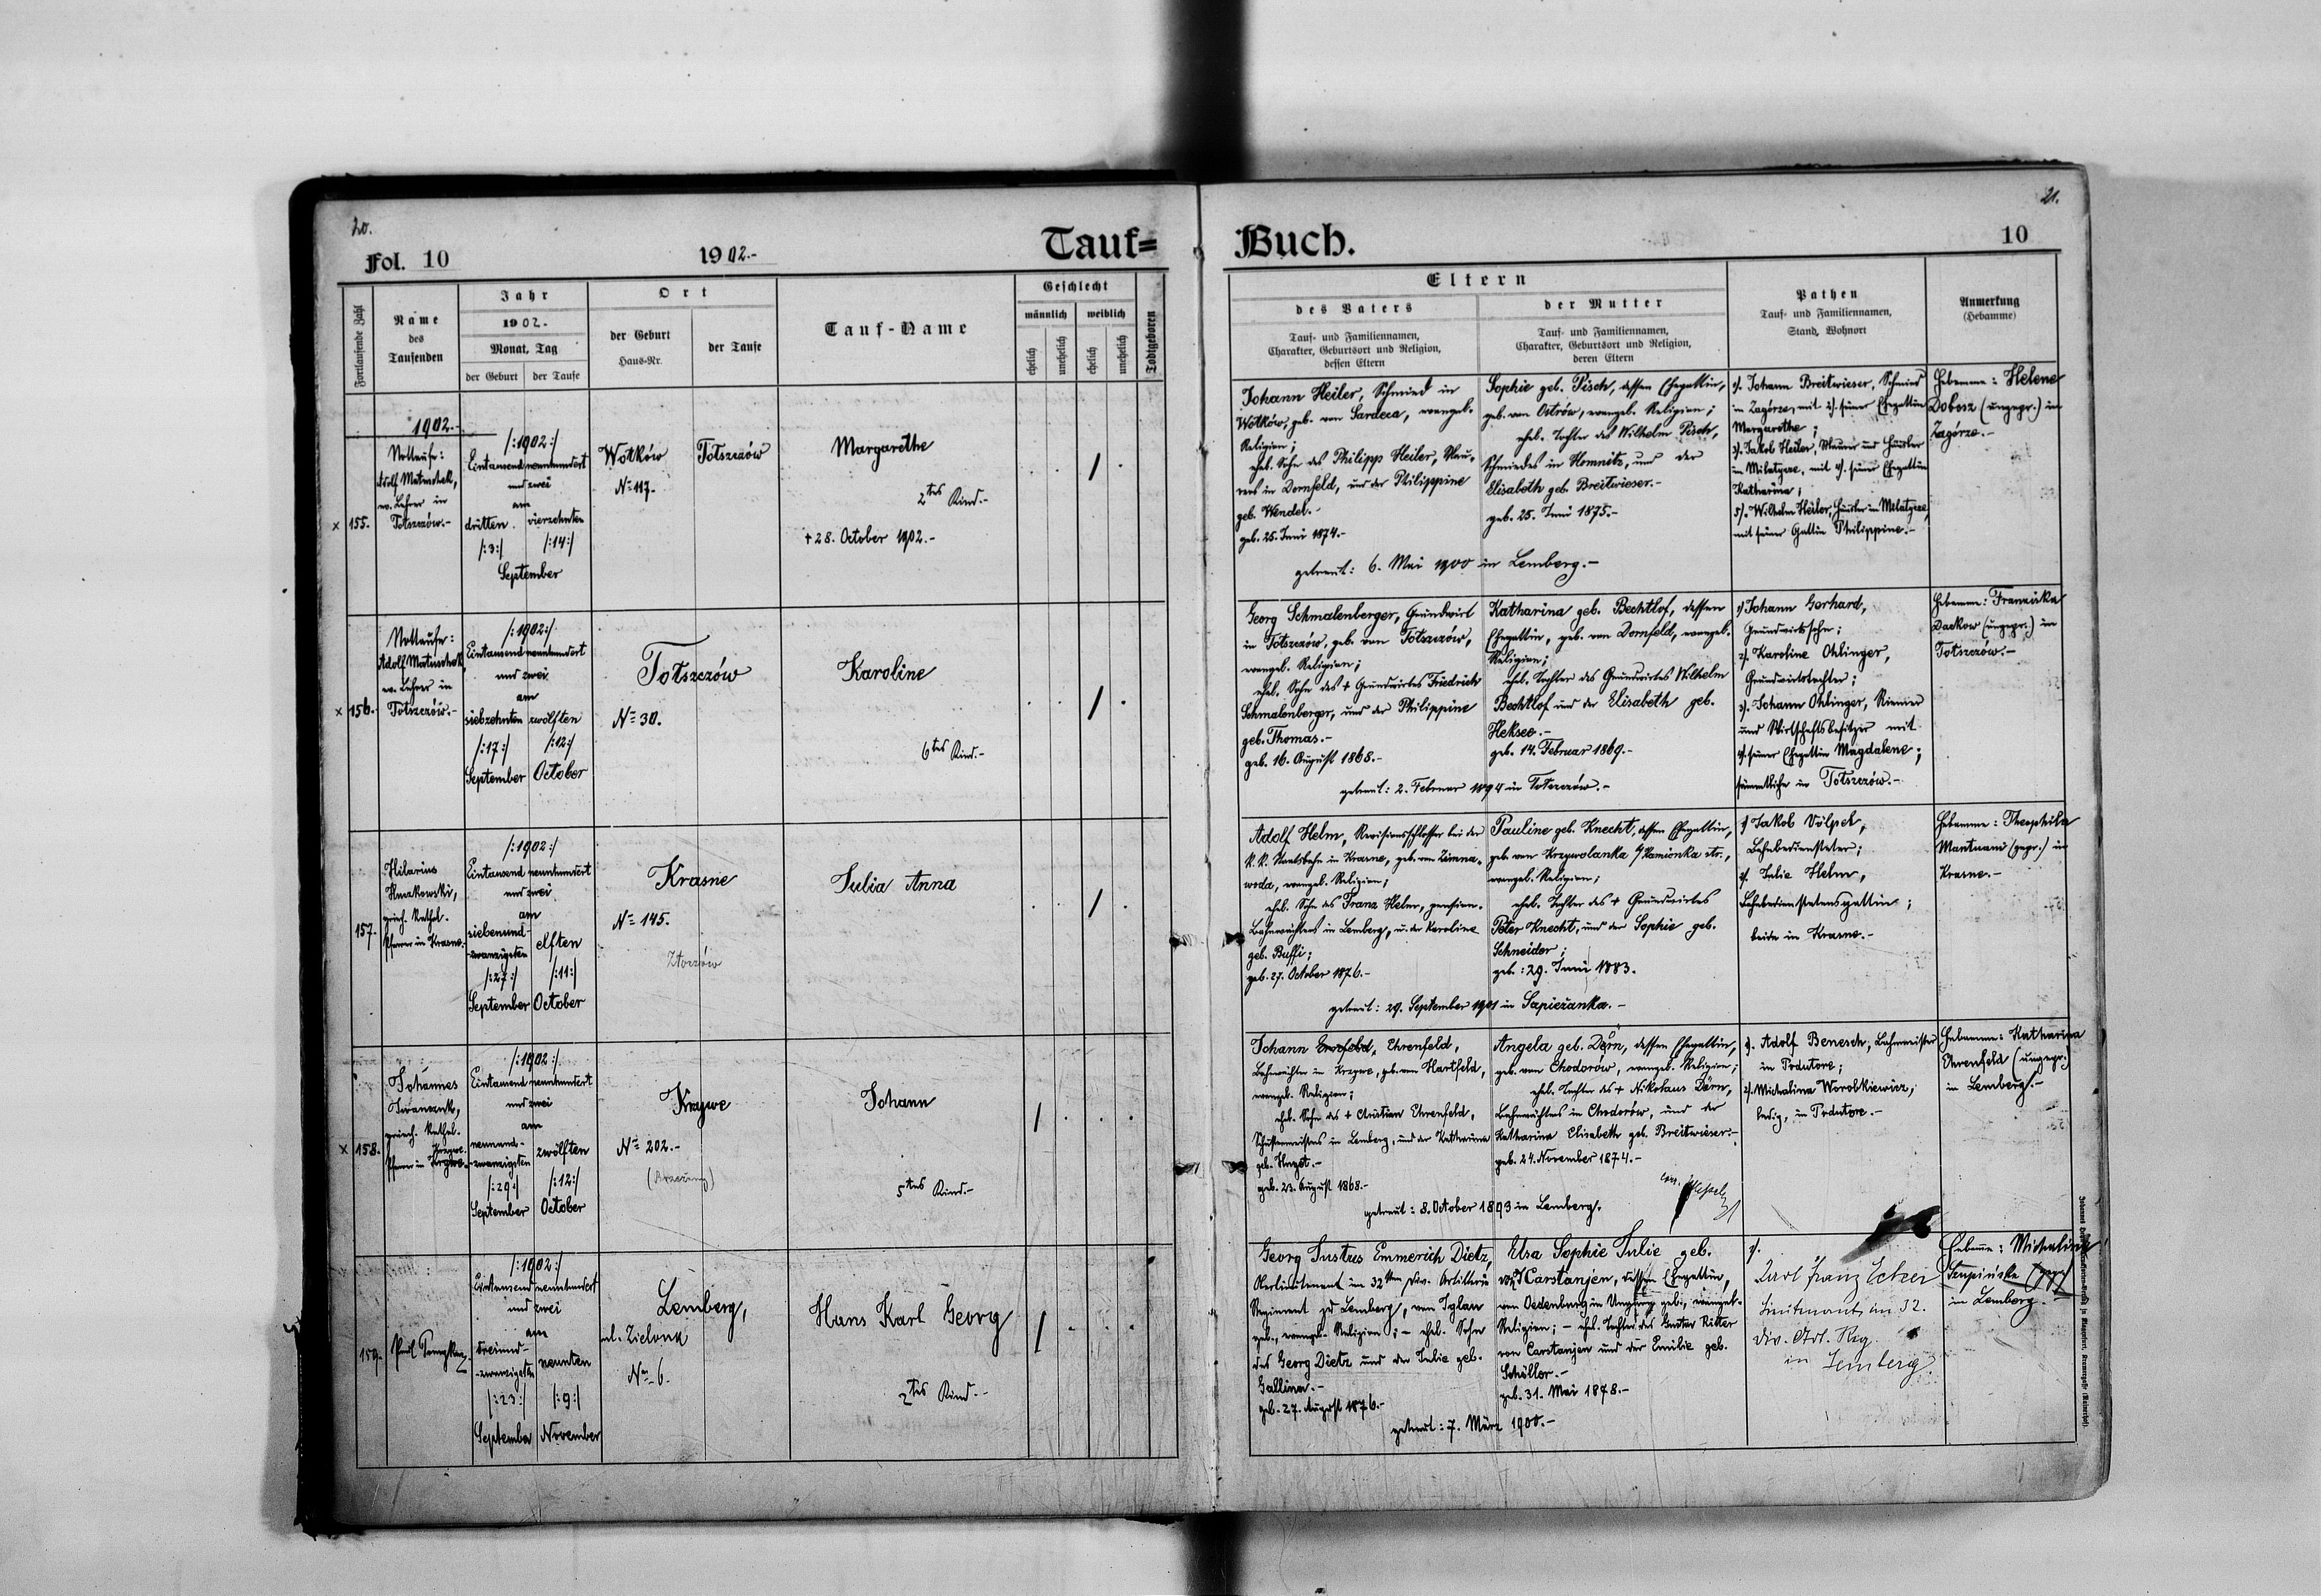 20.
21.
Fol. 10
1902.-
Tauf=
Buch.
10
Fortlaufende Zahl
Name
des
Taufenden
Jahr
1902.
Monat, Tag
der Geburt
der Taufe
Ort
der Geburt
Haus-Nr.
der Taufe
Tauf-Name
Geschlecht
männlich
weiblich
ehelich
unehelich
ehelich
unehelich
Todtgeboren
Eltern
des Vaters
Tauf- und Familiennamen,
Charakter, Geburtsort und Religion,
dessen Eltern
der Mutter
Tauf- und Familiennamen,
Charakter, Geburtsort und Religion,
deren Eltern
Pathen
Tauf- und Familiennamen,
Stand, Wohnort
Anmerkung
(Hebamme)
1902.-
x 155.
Nottaufe:
Adolf Matuschek,
ev. Lehrer in
Totszczów.-
/:1902:/
Eintausend neunhundert
und zwei
am
dritten
/:3:/
vierzehnten
/:14:/
September
Wołków
No 117.
Totszczów
Margarethe
2tes Kind.-
+ 28. October 1902.-
Johann Heiler, Schmied in
Wołków, geb. von Sardeca, evangel.
Religion;
ehel. Sohn des Philipp Heiler, Mau-
rers in Dornfeld, und der Philippine
geb. Wendel.-
geb. 25. Juni 1874.-
Sophie geb. Pisch, dessen Ehegattin,
geb. von Ostrów, evangel. Religion;
ehel. Tochter des Wilhelm Pisch,
Schmiedes in Homnitz, und der
Elisabeth geb. Breitwieser.-
geb. 25. Juni 1875.-
getraut: 6. Mai 1900 in Lemberg.-
1/. Johann Breitwieser, Schmied
in Zagórze, mit 2/. seiner Ehegattin
Margarethe;
3/. Jakob Heiler, Maurer und Häusler
in Milatycze, mit 4/. seiner Ehegattin
Katharina;
5/. Wilhelm Heiler, Häusler in Milatycze,
mit seiner Gattin Philippine.-
Hebamme: Helene
Dobosz (ungepr.) in
Zagórze.-
x 156.
Nottaufe:
Adolf Matuschek
ev. Lehrer in
Totszczów.-
/:1902:/
Eintausend neunhundert
und zwei
am
siebzehnten
/:17:/
September
zwölften
/:12:/
October
Totszczów
No 30.
Karoline
6tes Kind.-
Georg Schmalenberger, Grundwirt
in Totszczów, geb. von Totszczów,
evangel. Religion;
ehel. Sohn des + Grundwirtes Friedrich
Schmalenberger, und der Philippine
geb. Thomas.-
geb. 16. August 1868.-
Katharina geb. Bechtlof, dessen
Ehegattin, geb. von Dornfeld, evangel.
Religion;
ehel. Tochter des Grundwirtes Wilhelm
Bechtlof und der Elisabeth geb.
geb. 14. Februar 1869.-
getraut: 2. Februar 1894 in Totszczów.-
1/ Johann Gerhard,
Grundwirtssohn;
2/. Karoline Ohlinger,
Grundwirtstochter;
3/. Johann Ohlinger, Riemer
und Wirtschaftsbesitzer mit
4/. seiner Ehegattin Magdalene;
sämmtliche in Totszczów.-
Hebamme: Franciska
Dackow (ungepr.) in
Totszczów.-
157.
Hilarius
griech. kathol.
Pfarrer in Krasne.
/:1902:/
Eintausend neunhundert
und zwei
am
siebenund-
-zwanzigsten
/:27:/
September
elften
/:11:/
October
Krasne
No 145.
Złoczów
Julia Anna
Adolf Helm, Revisionsschlosser bei der
K.K. Staatsbahn in Krasne, geb. von Zimna-
woda, evangel. Religion;
ehel. Sohn des Franz Helm, pension.
Bahnwächters in Lemberg, u. der Karoline
geb. Buffi;
geb. 27. October 1876.-
Pauline geb. Knecht, dessen Ehegattin,
geb. von Krzywolanka b/Kamionka str.,
evangel. Religion;
ehel. Tochter des + Grundwirtes
Peter Knecht, und der Sophie geb.
Schneider;
geb.: 29. Juni 1883.
getraut: 29. September 1901 in Sapieżanka.-
1/ Jakob Völpel,
Bahnbediensteter;
2/. Julie Helm,
Bahnbedienstetensgattin;
beide in Krasne.-
Hebamme: Theophila
(gepr.) in
Krasne.-
x 158.
Johannes
griech. kathol.
Pfarrer in
/:1902:/
Eintausend neunhundert
und zwei
am
neunund-
-zwanzigsten
/:29:/
September
zwölften
/:12:/
October
Krzywe
No 202.-
(Brzeżany)
Johann
5tes Kind.-
Johann Ehrenfeld,
Bahnwächter in Krzywe, geb. von Hartfeld,
evangel. Religion;
ehel. Sohn des + Christian Ehrenfeld,
Schustermeisters in Lemberg, und der Katharina
geb.
geb. 23. August 1868.-
Angela geb. Dörn, dessen Ehegattin,
geb. von Chodorów, evangel. Religion;
ehel. Tochter des + Nikolaus Dörn,
Bahnwächters in Chodorów, und der
Katharina Elisabeth geb. Breitwieser.-
geb. 24. November 1874.-
getraut: 8. October 1893 in Lemberg.
1/. Adolf Benesch, Bahnmeister
in Podutore;
2/. Michalina Worobkiewicz,
ledig, in Podutore.-
Hebamme: Katharina
Ehrenfeld (ungepr.)
in Lemberg.-
159.
Paul
/:1902:/
Eintausend neunhundert
und zwei
am
dreiund-
-zwanzigsten
/:23:/
September
neunten
/:9:/
November
Lemberg,
ul. Zielona
No 6.
Hans Karl Georg
2tes Kind.-
Georg Justus Emmerich Dietz,
Oberlieutenant im 32ten Div. Artillerie
Regiment zu Lemberg, von Iglau
geb., evangel. Religion; - ehel. Sohn
des Georg Dietz und der Julie geb.
Gallina.-
geb. 27. August 1876.-
Elsa Sophie Julie geb.
von Carstanjen, dessen Ehegattin,
von Oedenburg in Ungarn geb., evangel.
Religion; - ehel. Tochter des Gustav Ritter
von Carstanjen und der Emilie geb.
Schöller.-
geb. 31. Mai 1878.-
getraut: 7. März 1900.-
1/.
Karl Franz
Lieutenant im 32.
Div. Art. Reg.
in Lemberg
Hebamme: Michalina
(gepr.)
in Lemberg.-